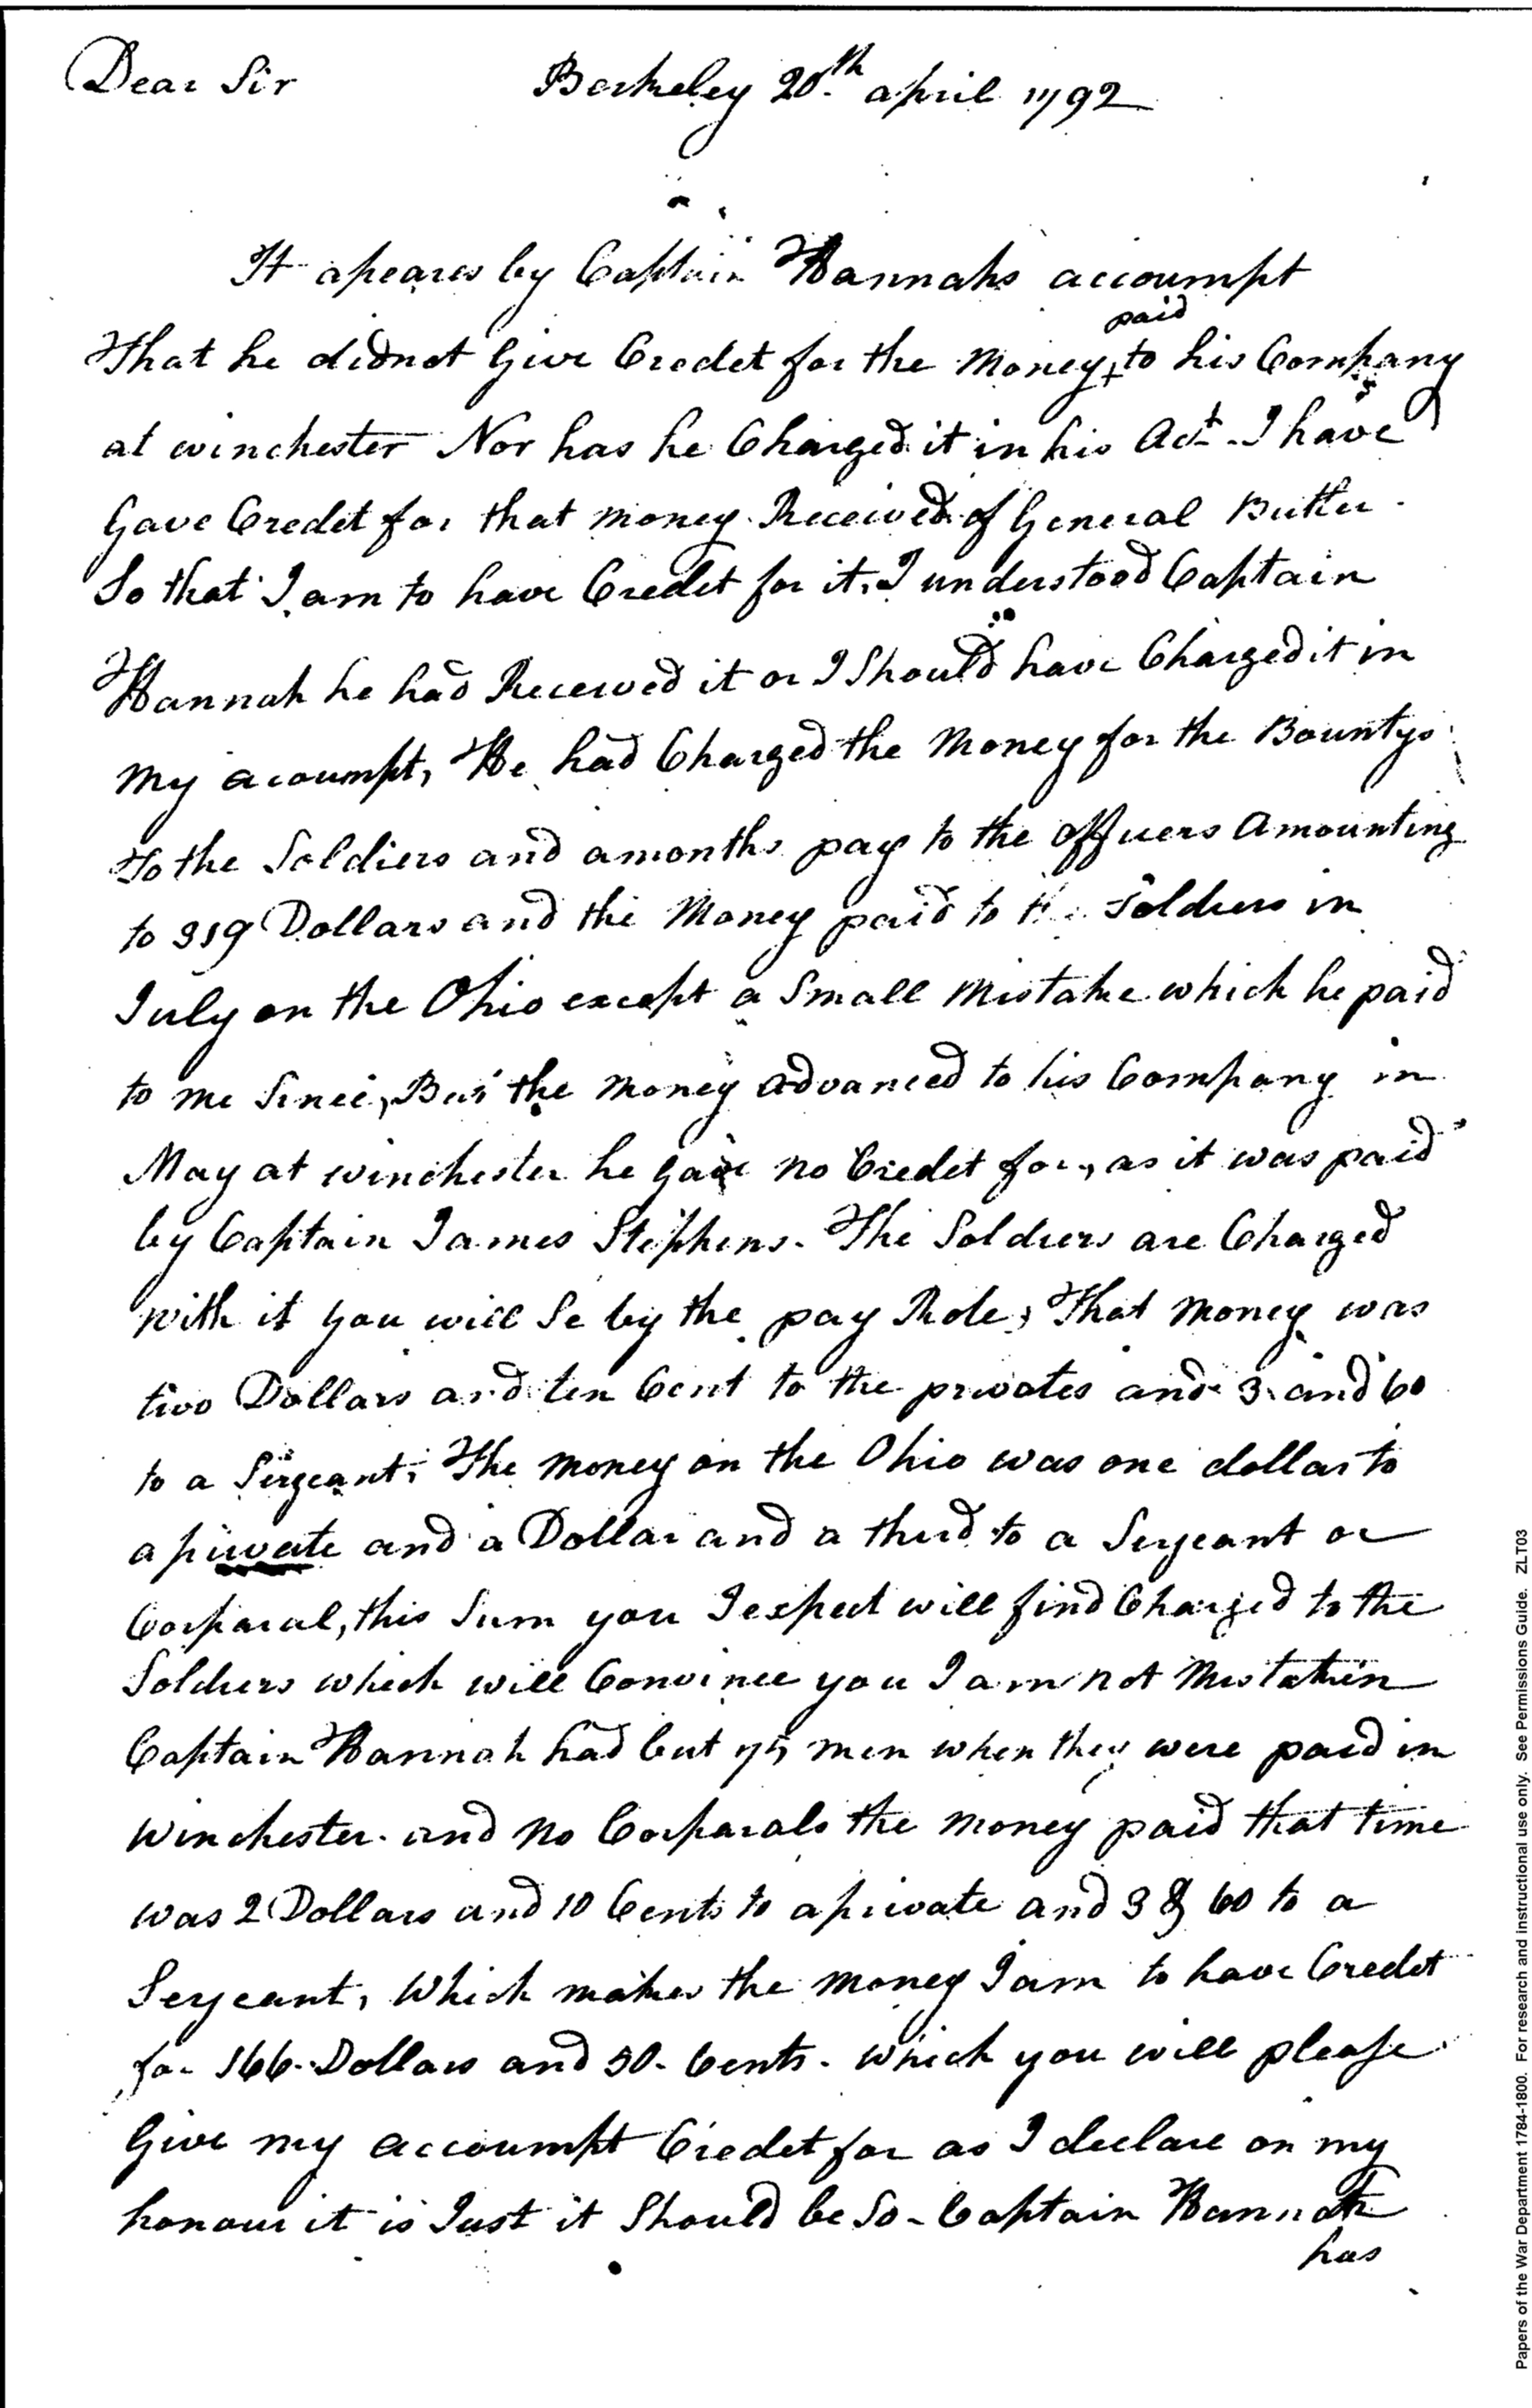 Dear Sir Berkeley 20th april 1792
It apeares by Captain Hannahs accoumpt
paid
That he didnot Give Credet for the Money to his Company
at winchester Nor has he Charged it in his Act I have
Gave Credet for that money Received of General Butler
So that I am to have Credet for it, I understood Captain
Hannah he had Received it or I Should have Charged it in
My acoumpt, He had Charged the Money for the Bountys
To the Soldiers and amonths pay to the officers Amounting
to 319 Dollars and the Money paid to the Soldiers in
July on the Ohio except a Small Mistake which he paid
to me Since, But the Money advanced to his Company in
May at winchester he gave no Credet for, as it was paid
by Captain James Stephens. The Soldiers are Charged
with it you will Se by the pay Role, That Money was
two Dollars and ten Cent to the privates and 3 and 60
to a Sergeant, The Money on the Ohio was one dollar to
a private and a Dollar and a third to a Sergeant or
Corparal, this Sum you I expect will find Charged to the
Soldiers which will Convince you I am not Mistaken
Captain Hannah had but 75 men when they were paid in
Winchester and no Corparals the money paid that time
was 2 Dollars and 10 Cents to a private and 3 & 60 to a
Sergeant, Which makes the money I am to have Credet
for 166 Dollars and 50 Cents. which you will please
Give my accoumpt Credet for as I declare on my
honour it is Just it Should be So - Captain Hannah
has
Papers of the War Department 1784-1800. For research and instructional use only. See Permissions Guide. ZLT03